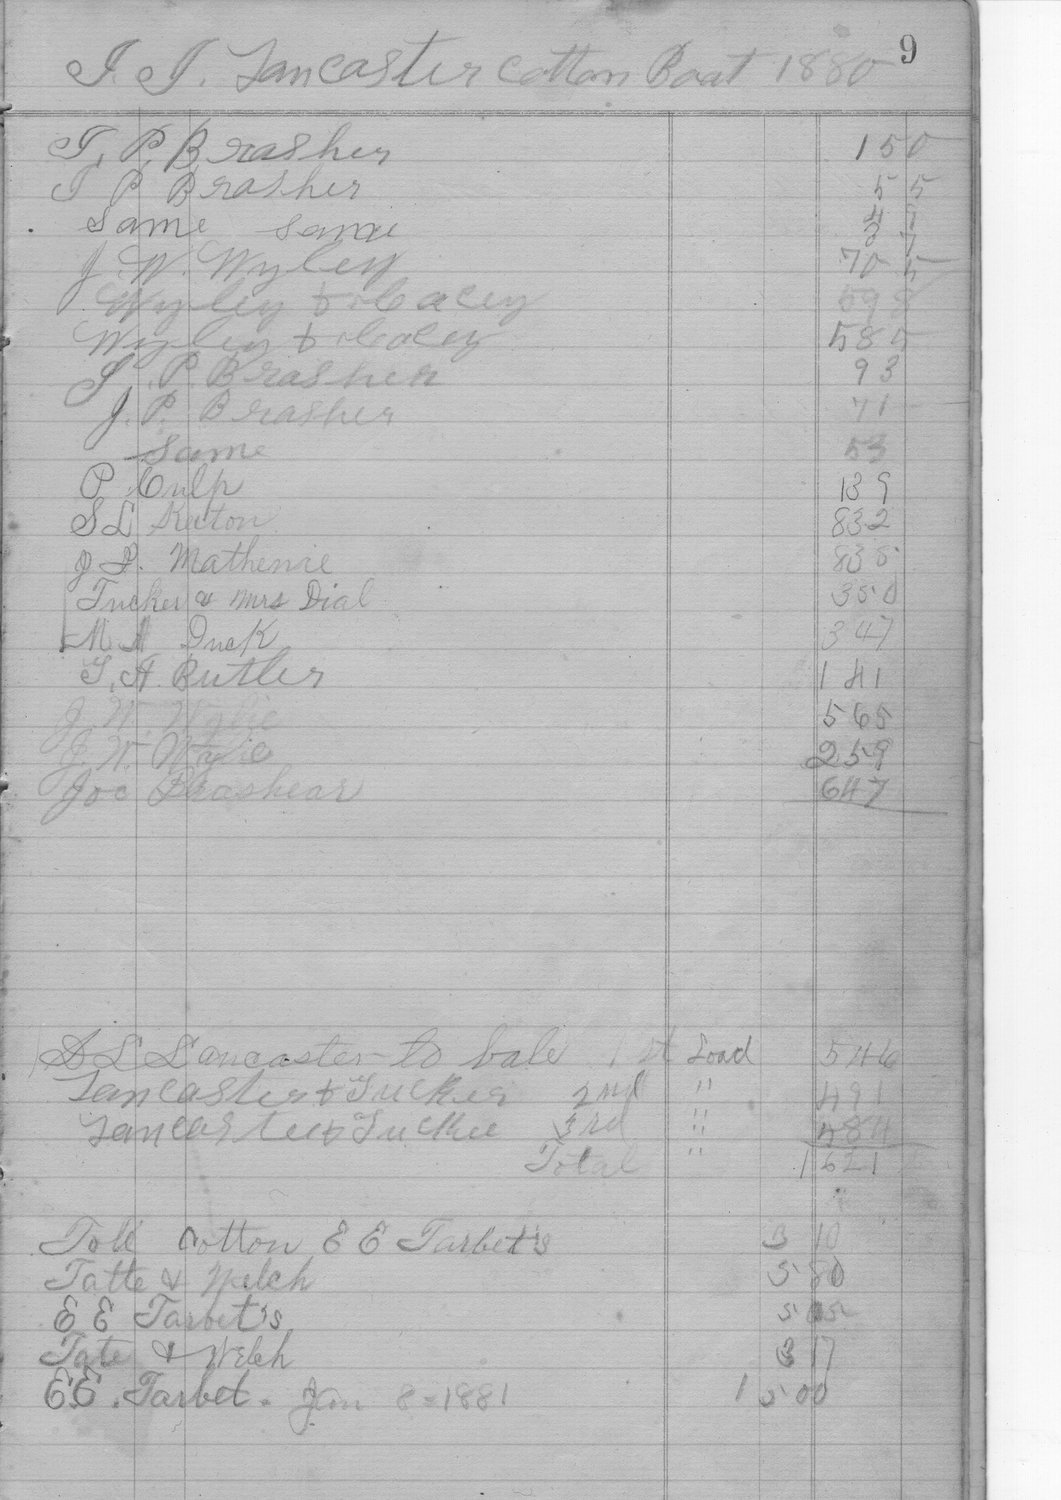 9
J. J. Lancaster Cotton Boat 1880
J. P. Brasher 150
J P Brasher 55
Same Same
J. W. Wyley 70 5
Wyley & Lacey 598
Wyley & Lacey 585
J. P. Brasher 93
J. P. Brasher 71
Same 53
P. Culp 139
S L Keeton 832
J. J. Mathenie 838
Tucker & Mrs Dial 350
M M Duck 347
T. A. Butler 141
J. W. Wylie 565
J. W. Wylie 259
Joe Brashear 647
S L Lancaster to bale 1st Load 546
Lancaster & Tucker 2nd " 491
Lancaster & Tucker 3rd " 584
Total " 1621
Tole Cotton E E Tarbet's 3 10
Tatte & Welch 5 80
E E Tarbet's 5 05
Tate & Welch 3 17
E E. Tarbet. Jan 8 = 1881 1 500